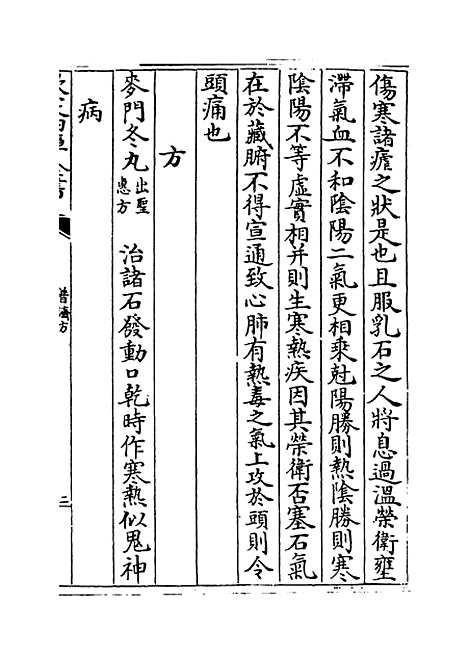 傷寒諸瘧之狀是也且服乳石之人將息過溫榮衛壅
滯氣血不和陰陽二氣更相乘尅陽勝則熱陰勝則寒
陰陽不等虛實相并則生寒熱疾因其榮衛否塞石氣
在於藏腑不得宣通致心肺有熱毒之氣上攻於頭則令
頭痛也
方
麥門冬丸出聖惠方 治諸石發動口乾時作寒熱似鬼神
病
普濟方
二